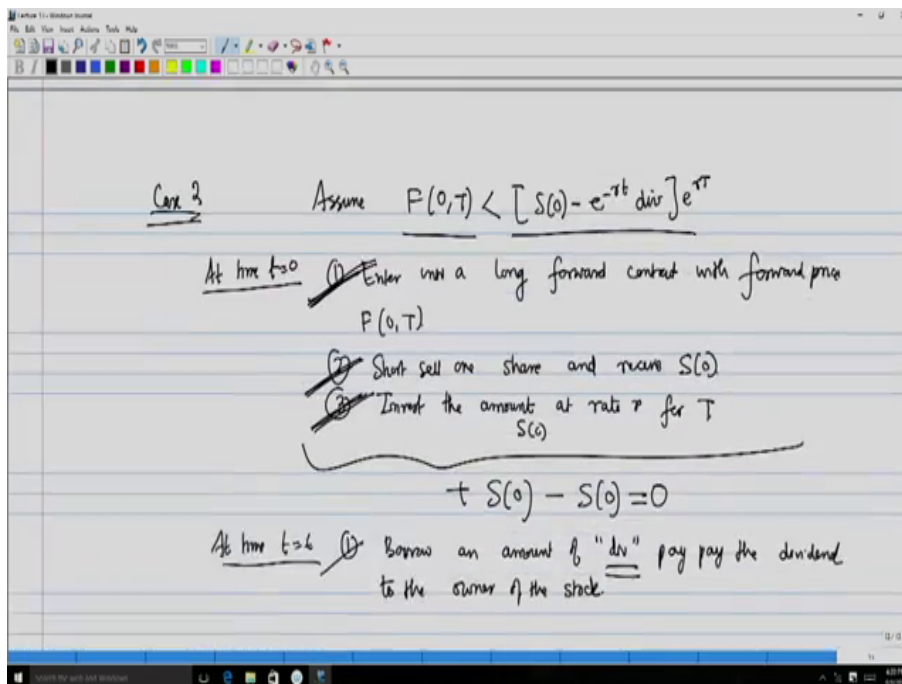 Lecture 13 - Windows Journal
File Edit View Insert Actions Tools Help
B I
Case 2 Assume F(0,T) < [S(0) - e^{-rt} div] e^{rT}
At time t=0 (1) Enter into a long forward contract with forward price
F(0,T)
(2) Short sell one share and receive S(0)
(3) Invest the amount at rate r for T
S(0)
+ S(0) - S(0) = 0
At time t=t (1) Borrow an amount of "div" pay pay the dividend
to the owner of the stock.
Search the web and Windows